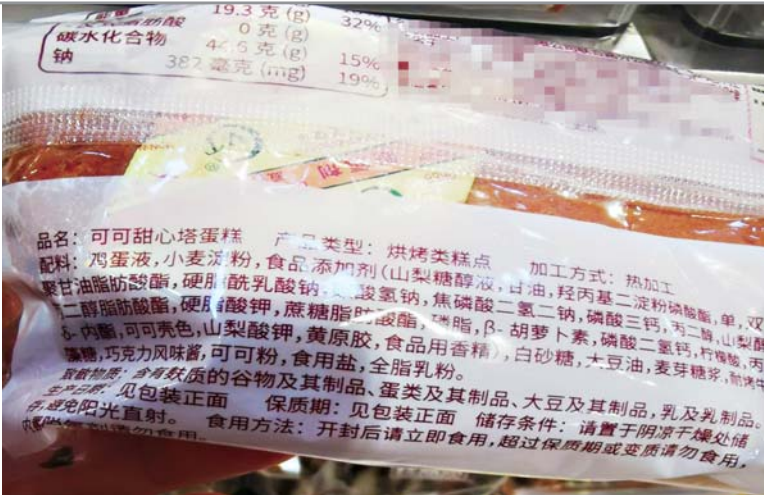 19.3 克 (g) 32%
脂肪酸 0 克 (g)
碳水化合物 44.6 克 (g) 15%
钠 382 毫克 (mg) 19%
品名: 可可甜心塔蛋糕 产品类型: 烘烤类糕点 加工方式: 热加工
配料: 鸡蛋液, 小麦淀粉, 食品添加剂 (山梨糖醇液, 甘油, 羟丙基二淀粉磷酸酯, 单, 双
聚甘油脂肪酸酯, 硬脂酰乳酸钠, 酸氢钠, 焦磷酸二氢二钠, 磷酸三钙, 丙二醇, 山梨酸
二醇脂肪酸酯, 硬脂酸钾, 蔗糖脂肪酸酯, 磷脂, β- 胡萝卜素, 磷酸二氢钙, 柠檬酸, 丙
δ- 内酯, 可可壳色, 山梨酸钾, 黄原胶, 食品用香精), 白砂糖, 大豆油, 麦芽糖浆,
藻糖, 巧克力风味酱, 可可粉, 食用盐, 全脂乳粉。
致敏物质: 含有麸质的谷物及其制品、蛋类及其制品、大豆及其制品, 乳及乳制品。
生产日期: 见包装正面 保质期: 见包装正面 储存条件: 请置于阴凉干燥处储
存, 避免阳光直射。 食用方法: 开封后请立即食用, 超过保质期或变质请勿食用,
请勿食用。